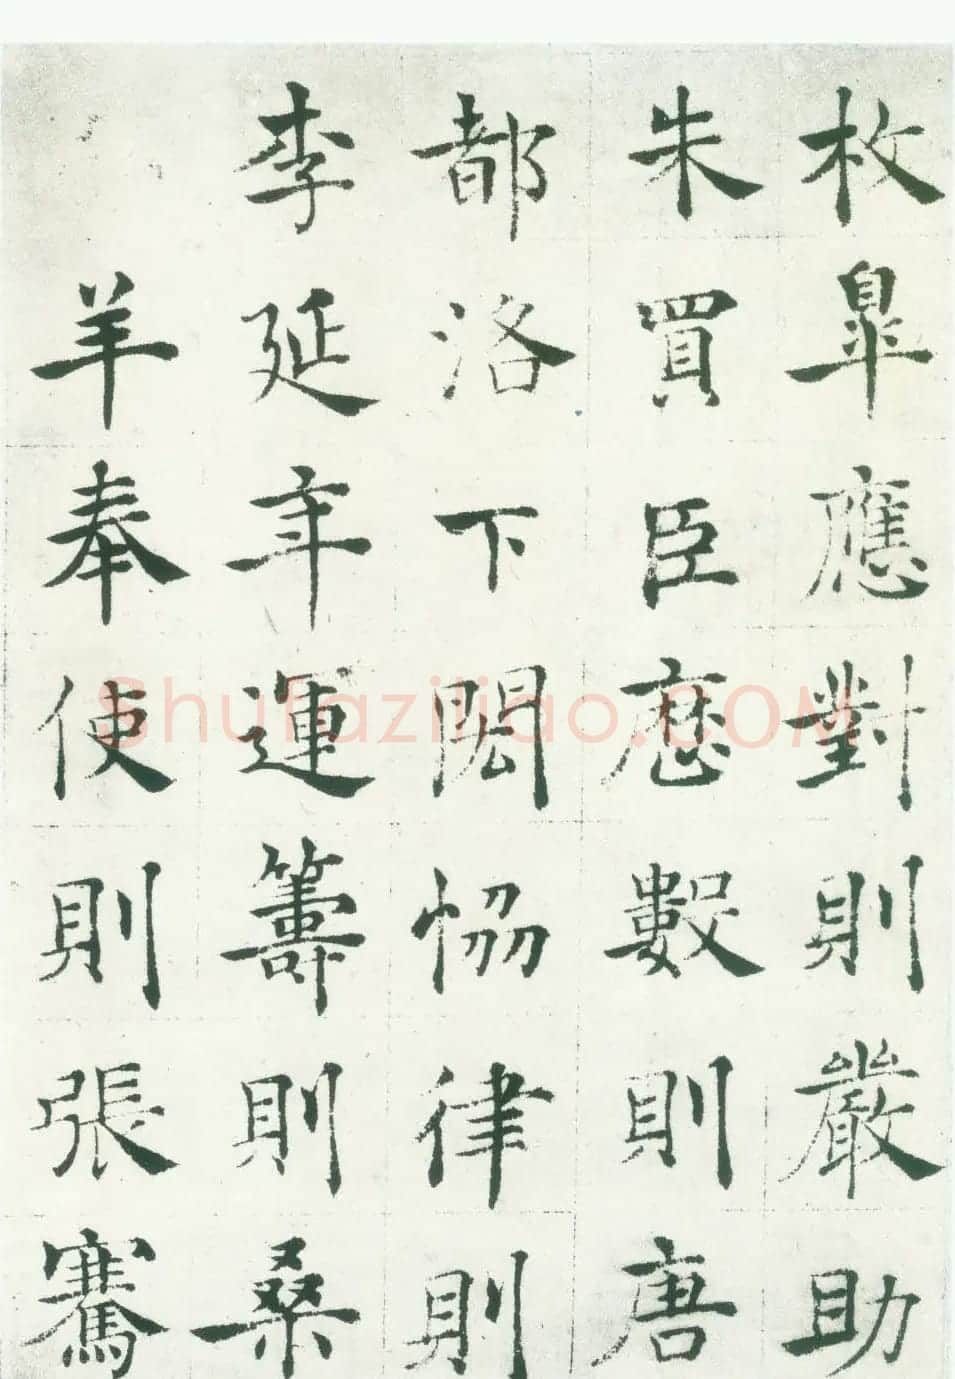 枚皐應對則嚴助
朱買臣曆數則唐
都洛下閎恊律則
李延年運籌則桑
羊奉使則張騫
Shufaziliao.COM